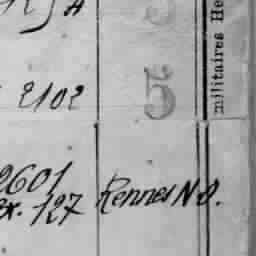 2102 5
militaires He
2601
ex. 127 Rennes N D.